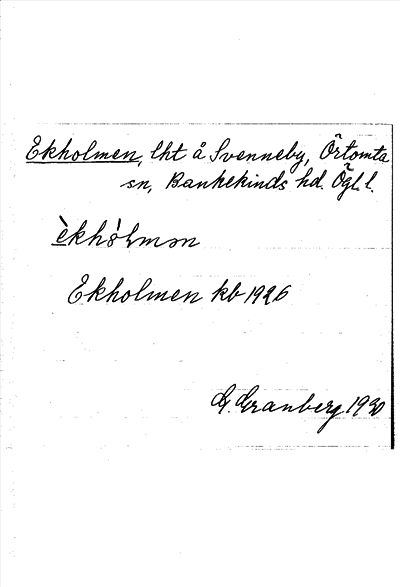 Ekholmen, lht å Svenneby, Örtomta
sn, Bankekinds hd. Ögl. l.
èkhòlmən
Ekholmen kb 1926
G. Granberg 1930